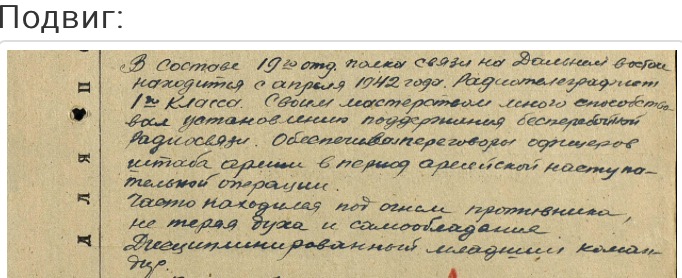 Подвиг:
В составе 19го отд. полка связи на Дальнем востоке
находится с апреля 1942 года. Радиотелеграфист
1го класса. Своим мастерством много способство-
вал установлению поддержания бесперебойной
Радиосвязи. Обеспечивал переговоры офицеров
штаба армии в период армейской наступа-
тельной операции.
Часто находился под огнем противника,
не теряя духа и самообладание
Дисциплинированный младший коман-
дир.
Д Л Я П